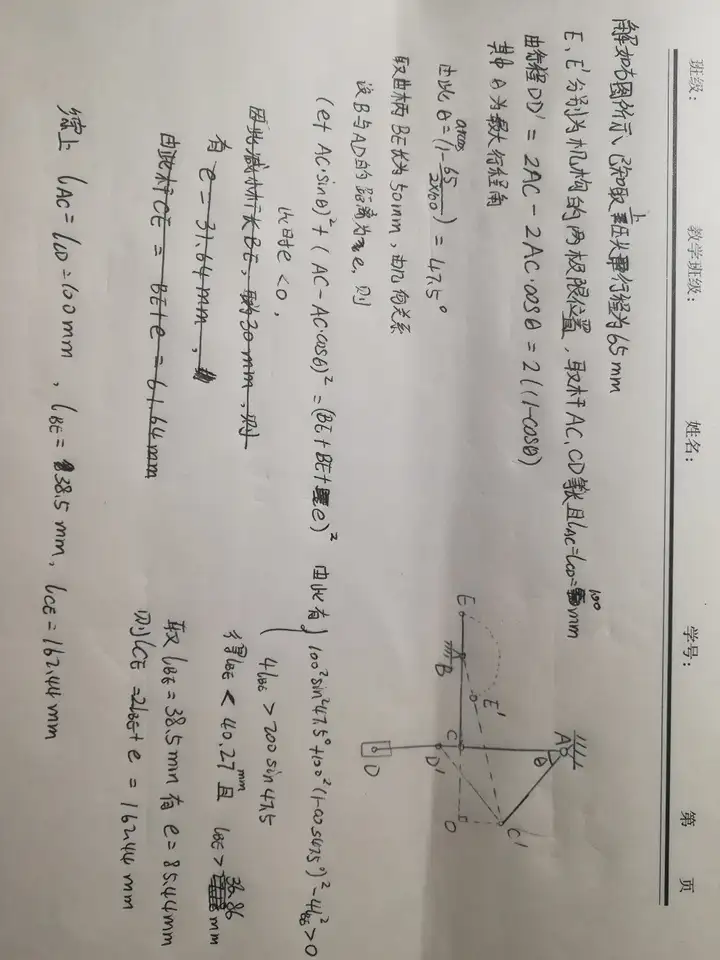 班级：
教学班级：
姓名：
学号：
第 页
解如右图所示，已知取上压头行程为65mm
E、E'分别为机构的两极限位置，取杆AC、CD等长且l_AC=l_CD=100mm
由行程DD'=2AC-2AC·cosθ=2l(1-cosθ)
其中θ为最大行程角
由此 θ=arccos(1-65/2×100)=47.5°
取曲柄BE长为50mm，由几何关系
设B与AD的距离为e，则
(e+AC·sinθ)²+(AC-AC·cosθ)²=(BE+BE+e)²
此时e<0，
因此减小杆长BE，取为30mm，则
有 e=31.64mm，
由此杆CE=BE+e=61.64mm
由此有
100²sin²47.5°+100²(1-cos47.5°)²-4l²_BE>0
4l_BE>200sin47.5
得l_BE<40.27mm且 l_BE>36.86mm
取l_BE=38.5mm 有 e=85.44mm
则l_CE=2l_BE+e=162.44mm
综上 l_AC=l_CD=100mm，l_BE=38.5mm，l_CE=162.44mm
A
θ
E
B
E'
C
C'
D'
O
D